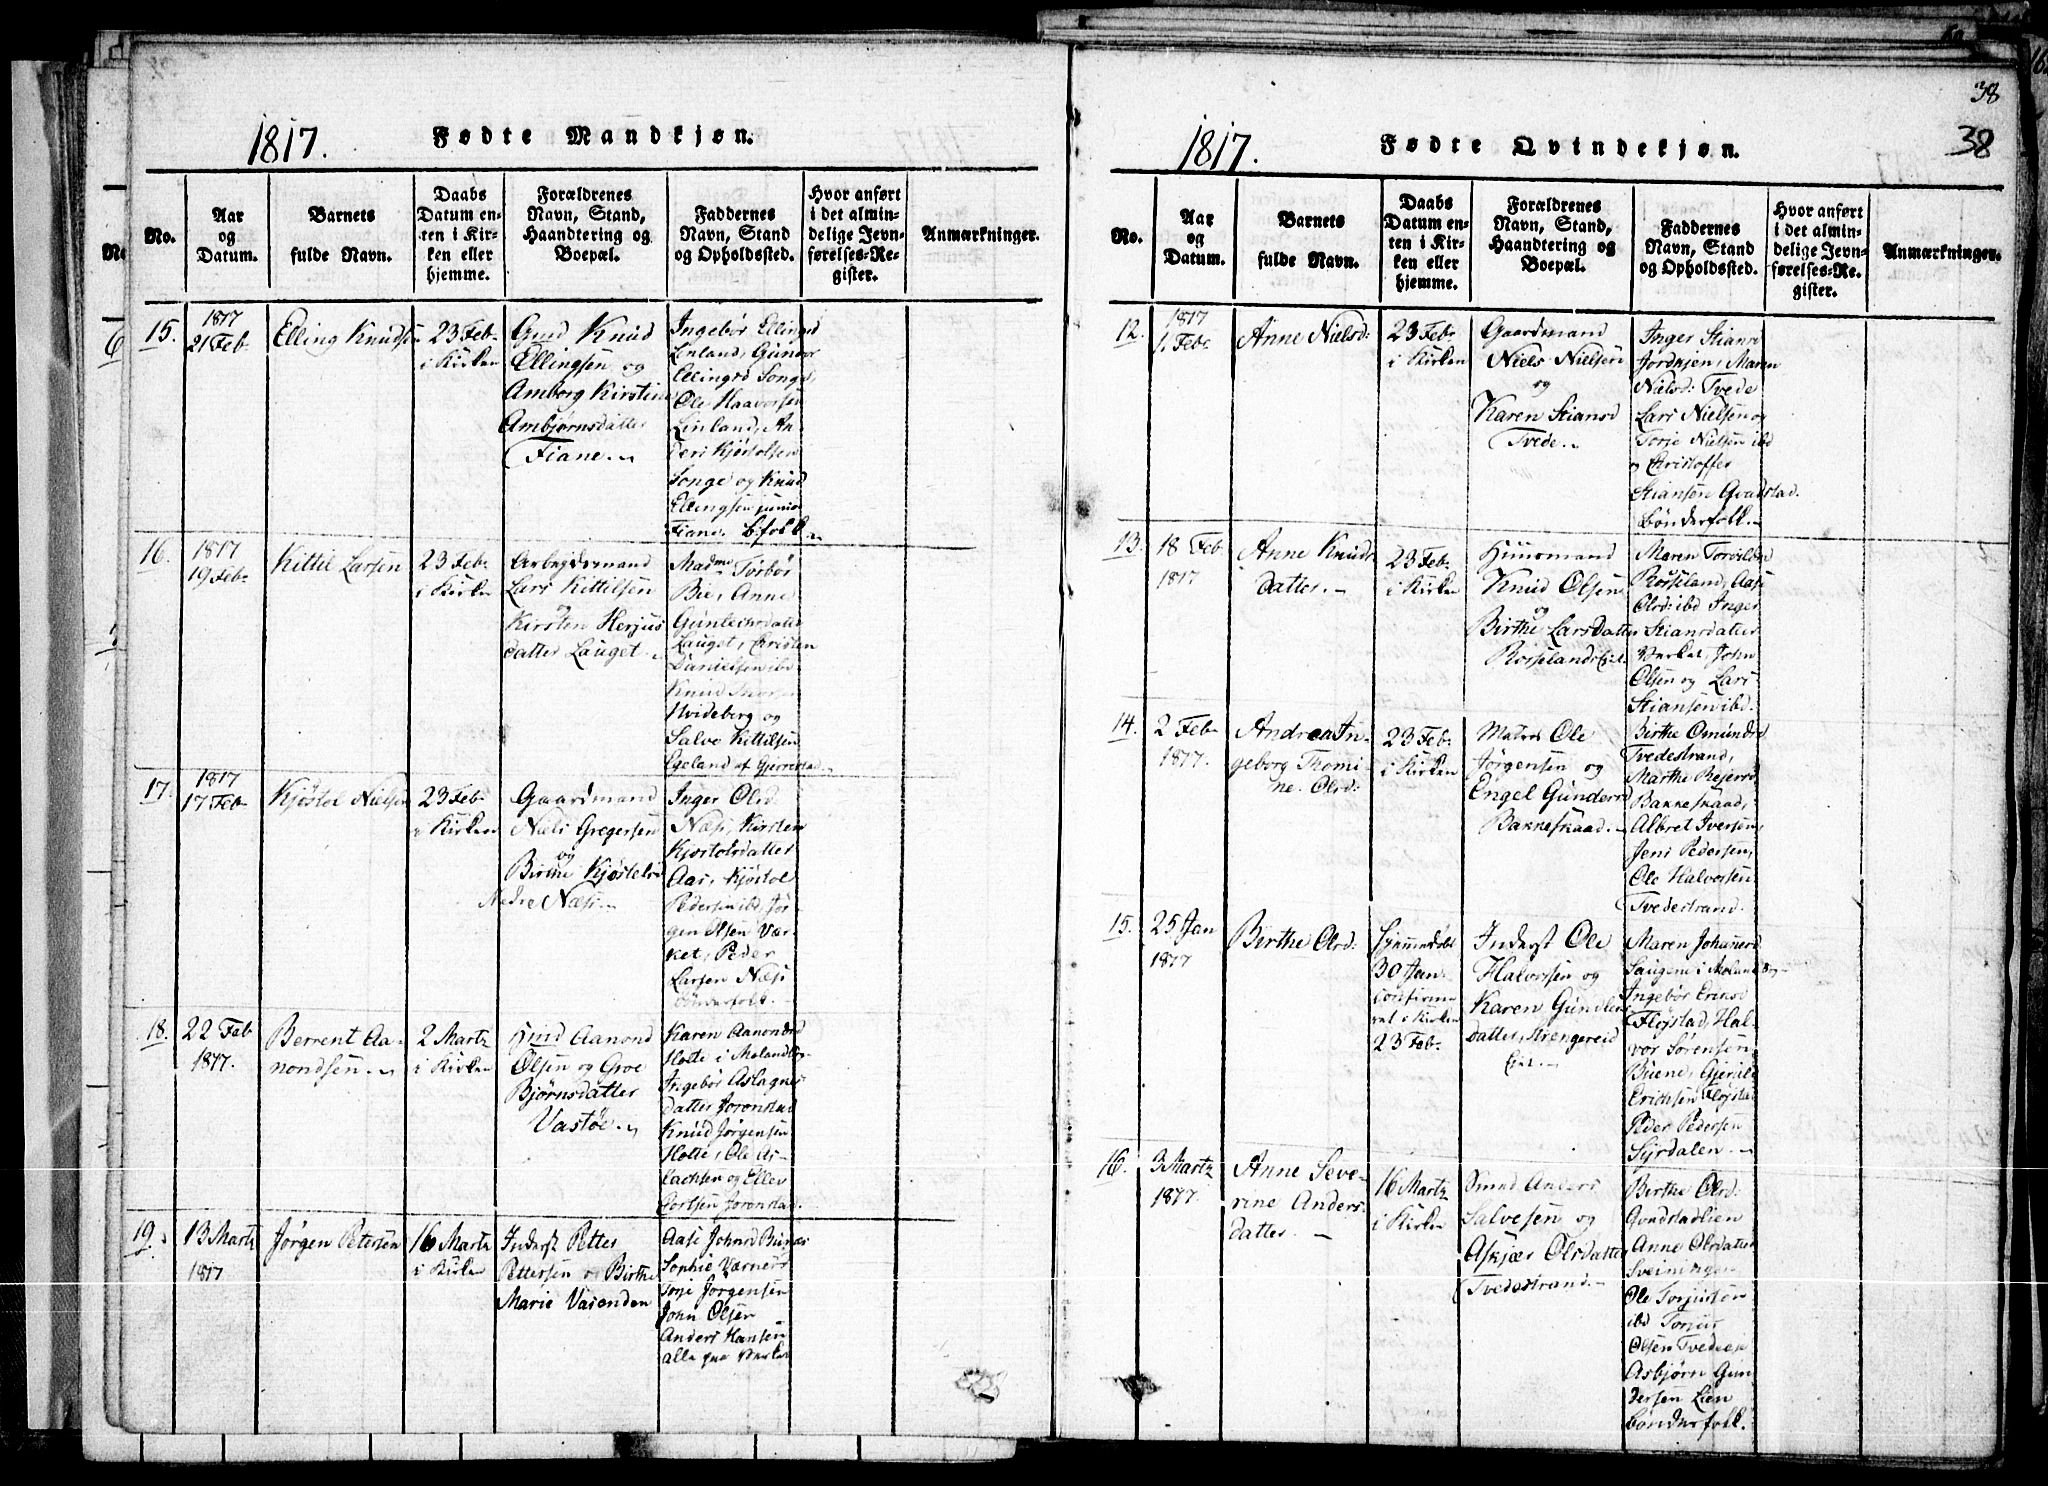 1817.
Fødte Mandkjøn.
No.
Aar
og
Datum.
Barnets
fulde Navn.
Daabs
Datum en-
ten i Kir-
ken eller
hjemme.
Forældrenes
Navn, Stand,
Haandtering og
Boepæl.
Faddernes
Navn, Stand
og Opholdssted.
Hvor anført
i det almin-
delige Jevn-
førelses-Re-
gister.
Anmærkninger.
15.
1817
21 Feb.
Elling Knuds
23 Feb.
i Kirken
Gmd Knud
Ellingsen og
Amborg Kirstine
Ambjørnsdatter
Fiane.
Ingebor Ellingsd
Linland, Gunvor
Ellingsd Songe,
Ole Haavorsen
Linland, An-
ders Kjøstolsen
Songe og Knud
Ellingsen junior
Fiane. b.folk
16.
1817
19 Feb.
Kittil Larsen
23 Feb.
i Kirken
Arbeidsmand
Lars Kittilsen
Kirsten Herjus
datter Lauget.
Madme Torbor
Bie, Anne
Gunleiksdatter
Lauget, Christen
Danielsen ibd
Knud
Hvideberg og
Salve Kittilsen
Egeland af Gjerrestad
17.
1817
17 Feb.
Kjøstol Nielsen
23 Feb.
i Kirken
Gaardmand
Niels Gregersen
og
Birthe Kjøstelsd
Nedre Næs
Inger Olsd
Næs, Kirsten
Kjøstolsdatter
Aas, Kjøstol
Pedersen ibd, Jør-
gen Olsen Vær-
ket, Peder
Larsen Næs
bønderfolk.
18.
22 Feb
1817.
Berrent Aa-
nondsen.
2 Martz
i Kirken
Hmd Aanond
Olsen og Groe
Bjørnsdatter
Vastøe.
Karen Aanondsd
Holte i
Ingebør Aslagnes
datter Joronstad
Knud Jørgensen
Holte, Ole As-
lachsen og Ellev
Joronstad.
19.
13 Martz
1817
Jørgen Petersen
16 Martz
i Kirken
Inderst Petter
Pettersen og Birthe
Marie Vasenden
Aase Johnsd
Sophie Værners
Jørgensen
John Olsen
Anders Hansen
alle paa Værket
38
38
1817.
Fødte Qvindekjøn.
No.
Aar
og
Datum.
Barnets
fulde Navn.
Daabs
Datum en-
ten i Kir-
ken eller
hjemme.
Forældrenes
Navn, Stand,
Haandtering og
Boepæl.
Faddernes
Navn, Stand
og Opholdssted.
Hvor anført
i det almin-
delige Jevn-
førelses-Re-
gister.
Anmærkninger.
12.
1817
Febr
Anne Nielsd:
23 Feb.
i Kirken
Gaardmand
Niels Nielsen
og
Karen Stiansd
Tvede.
Inger Stiansd
Maren
Nielsd: Tvede
Lars Nielsen og
Torje Nielsen ibd
og Christoffer
Stiansen Qvadstad.
bønderfolk.
13.
18 Feb
1817
Anne Knuds
datter.
23 Feb.
i Kirken
Huusmand
Knud Olsen
og
Birthe Larsdatter
Rosselands Eiet.
Maren
Rosseland, Aase
Olsd: ibd Inger
Stiansdatter
Værket, John
Olsen og Lars
Stiansen ibd.
14.
2 Feb.
1817.
Andrea In-
geborg Thomi-
ne. Olsd:
23 Feb.
i Kirken
Matros Ole
Jørgensen og
Engel Gundersd
Bakkeskaad.
Birthe Omundsd
Tvedestrand,
Marthe Rejersd
Bakkeskaad,
Albret Iversen,
Jens Pedersen,
Ole Halvorsen
Tvedestrand.
15.
25 Jan
1817
Birthe Olsd:
Hjemmedøbt
30 Jan.
confirme
ret i Kirken
23 Feb.
Inderst Ole
Halvorsen og
Karen Gundersd
datter, Strengereid
Eiet.
Maren Johannesd
Ingebor Ericsd
Fløjstad, Hal-
vor Sørensen
Buene, Gjeruld
Erichsen Fløjstad
Peder Pedersen
Syrdalen.
16.
3 Martz
1817.
Anne Seve-
rine Anders
datter.
16 Martz
i Kirken
Smed Anders
Salvesen og
Askjær Olsdatter
Tvedestrand.
Birthe Olsd:
Anne Olsdatter
Sveinungen
Ole Torjussen
ibd Torjus
Olsen Tvede
Asbjørn Gun
dersen Lien
bønderfolk.